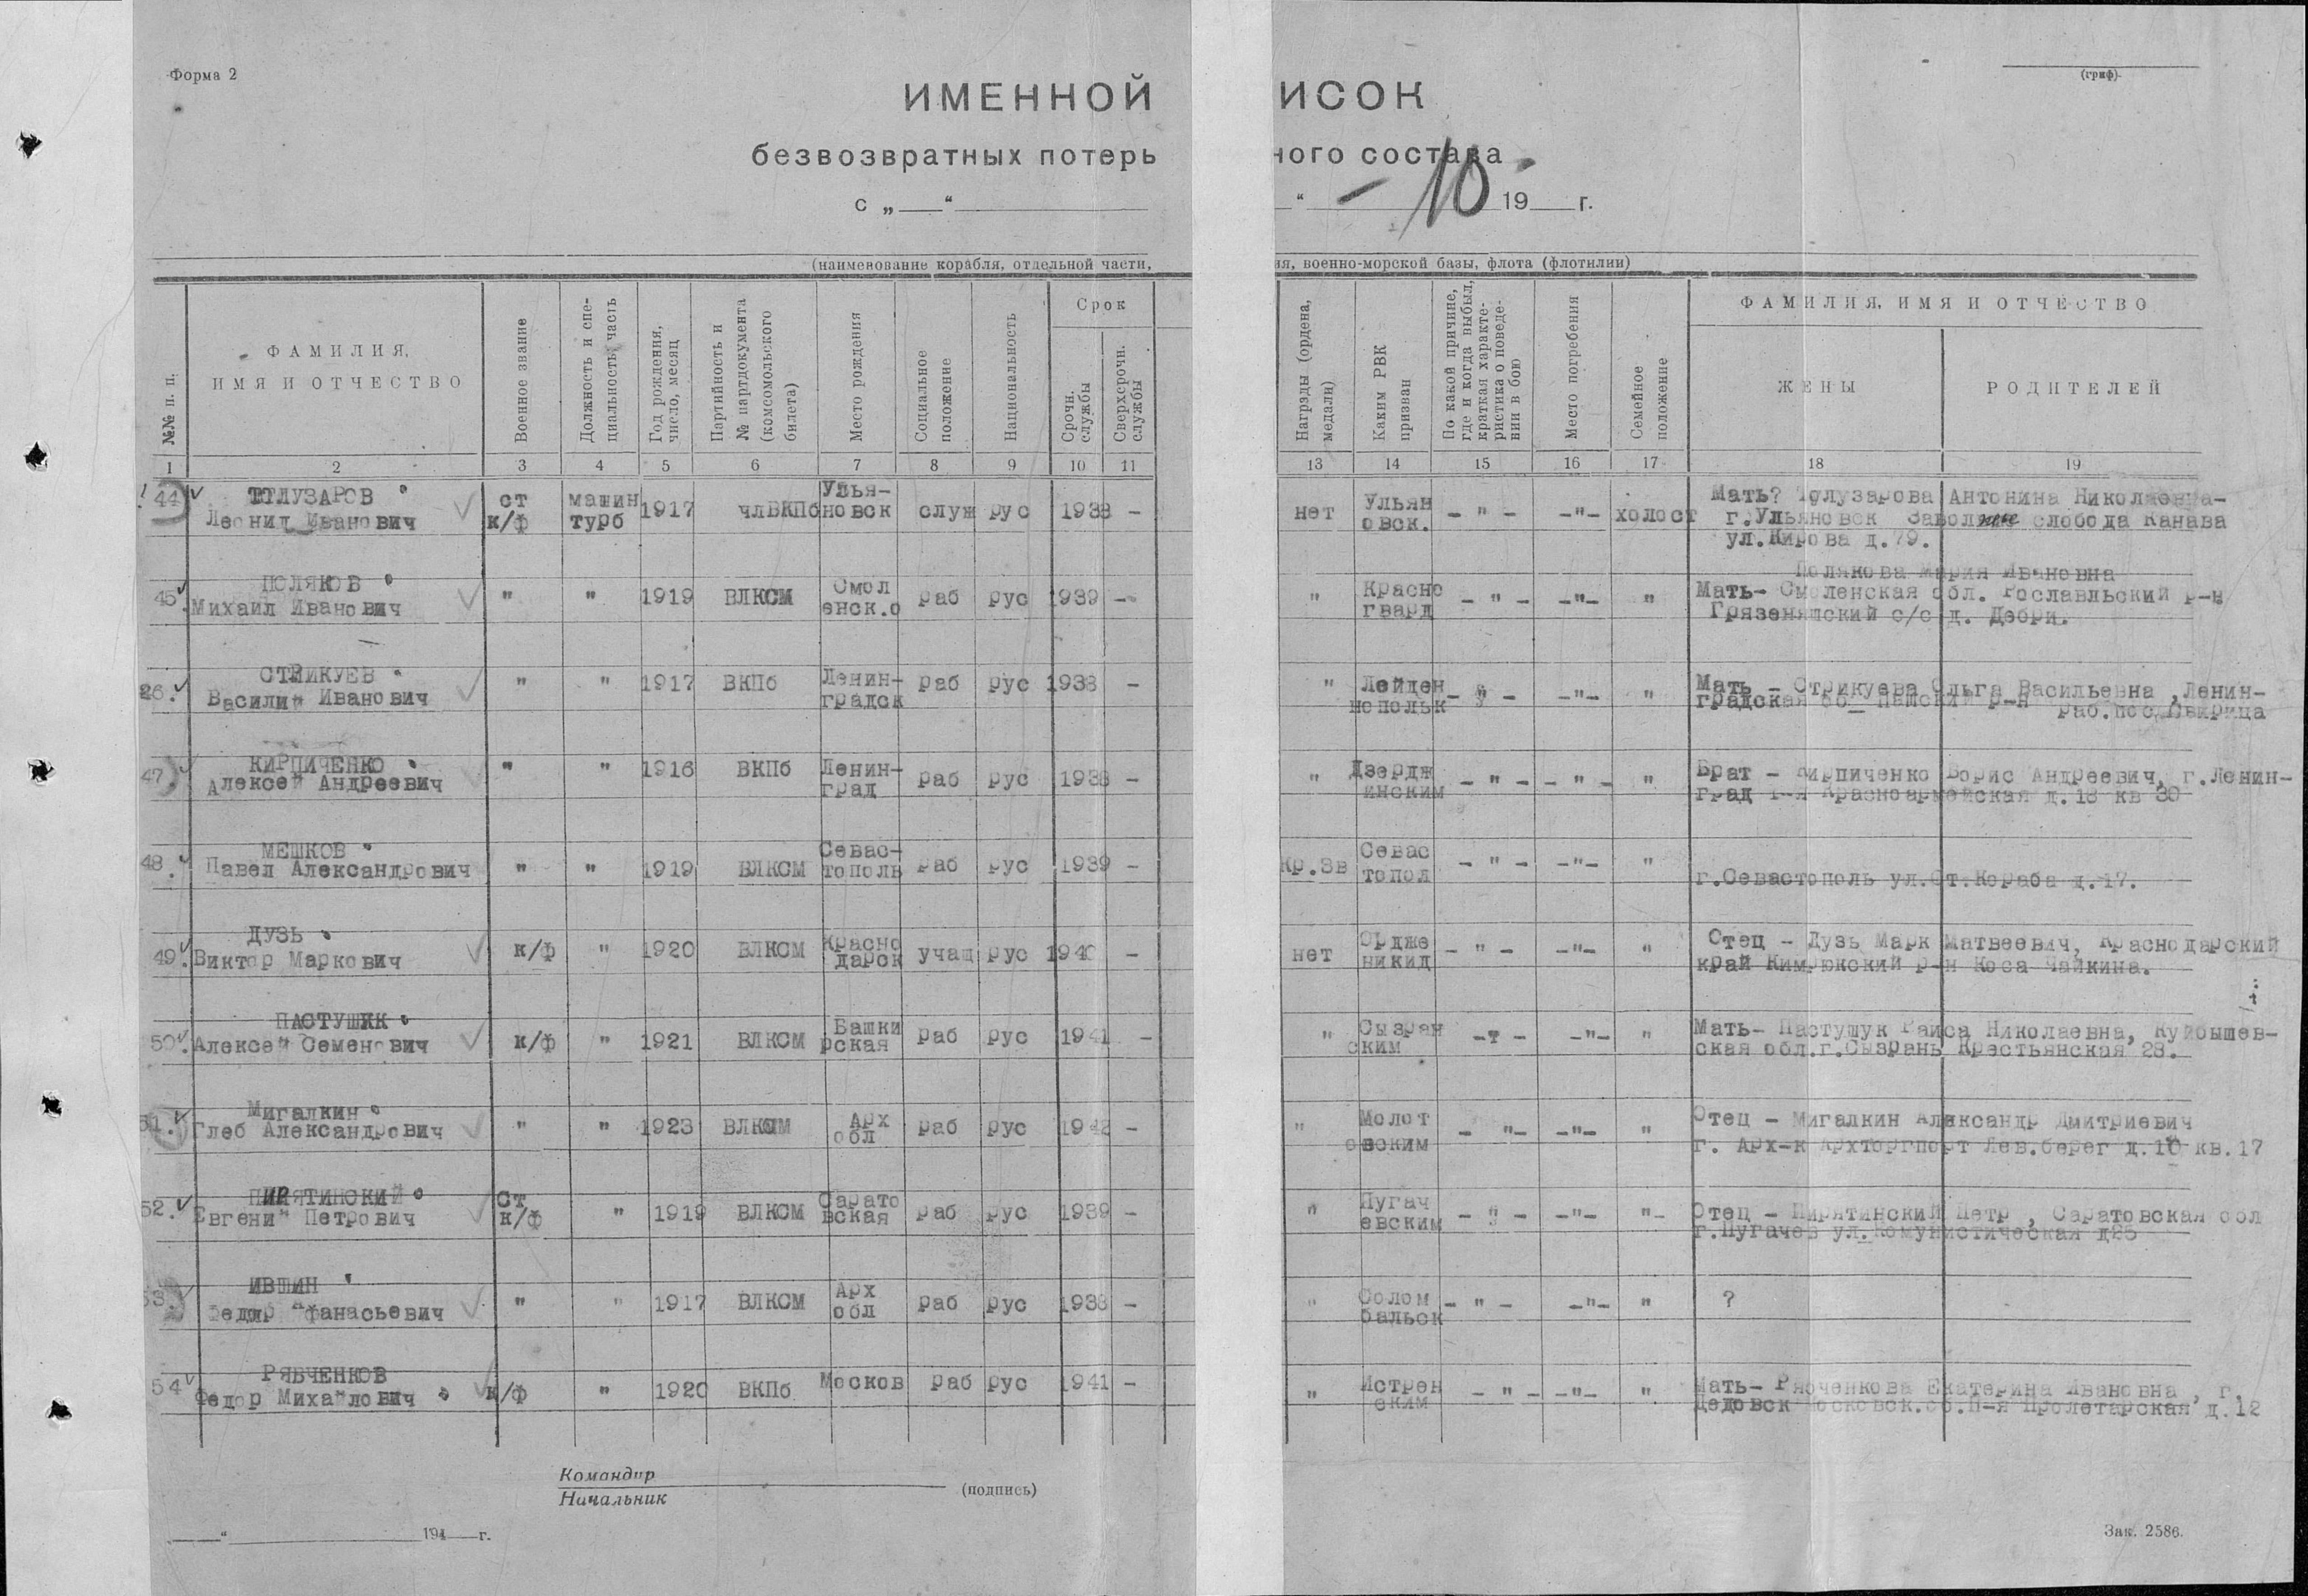 Форма 2
(гриф)
ИМЕННОЙ ИСОК
безвозвратных потерь ного состава
с „ “ “ – 10 19 г.
(наименование корабля, отдельной части, ия, военно-морской базы, флота (флотилии)
№№ п. п. ФАМИЛИЯ, ИМЯ И ОТЧЕСТВО Военное звание Должность и специальность, часть Год рождения, число, месяц Партийность и № партдокумента (комсомольского билета) Место рождения Социальное положение Национальность Срок Срочн. службы Сверхсрочн. службы Награды (ордена, медали) Каким РВК призван По какой причине, где и когда выбыл, краткая характеристика о поведении в бою Место погребения Семейное положение ФАМИЛИЯ, ИМЯ И ОТЧЕСТВО ЖЕНЫ РОДИТЕЛЕЙ
1 2 3 4 5 6 7 8 9 10 11 13 14 15 16 17 18 19
44 ТОЛУЗАРОВ ст машин Улья- Ульян Мать? Толузарова Антонина Николаевна-
Леонид Иванович к/ф турб 1917 члВКПб новск служ рус 1938 – нет овск. – " – –"– холост г.Ульяновск слобода Канава
ул.Кирова д.79.
ПОЛЯКОВ Смол Красно Полякова Мария Ивановна
45. Михаил Иванович " " 1919 ВЛКСМ енск.о раб рус 1939 – " гвард – " – –"– " Мать- Смоленская обл. Рославльский р-н
Грязенятский с/с д. Дебри.
СТРИКУЕВ Ленин- Лейнен Мать - Стрикуева Ольга Васильевна ,Ленин-
26. Василий Иванович " " 1917 ВКПб градск раб рус 1938 – " – " – –"– " градская об Пашский р-н раб.пос.Свирица
КИРПИЧЕНКО Ленин- Дзердж Брат - Кирпиченко Борис Андреевич, г.Ленин-
47 Алексей Андреевич " " 1916 ВКПб град раб рус 1938 – " инским – " – – " – " град Красноармейская д.18 кв 30
МЕШКОВ Севас- Севас
48. Павел Александрович " " 1919 ВЛКСМ тополь раб рус 1939 – Кр.Зв топол – " – –"– " г.Севастополь ул.Ст.Кораба д.17.
ДУЗЬ Красно Ордже Отец - Дузь Марк Матвеевич, Краснодарский
49. Виктор Маркович к/ф " 1920 ВЛКСМ дарск учащ рус 1940 – нет никид – " – –"– " край р-н Коса Чайкина.
ПАСТУШУК Башки Сызран Мать- Пастушук Раиса Николаевна, Куйбышев-
50. Алексей Семенович к/ф " 1921 ВЛКСМ рская раб рус 1941 – " ским –"– –"– " ская обл.г.Сызрань Крестьянская 28.
Мигалкин Арх Молот Отец - Мигалкин Александр Дмитриевич
51. Глеб Александрович " " 1923 ВЛКСМ обл раб рус 1942 – " овским – "– –"– " г. Арх-к Архторгпорт Лев.берег д.10 кв.17
ПИРЯТИНСКИЙ Ст Сарато Пугач Отец - Пирятинский Петр , Саратовская обл
52. Евгений Петрович к/ф " 1919 ВЛКСМ вская раб рус 1939 – " евским – " – –"– "– г.Пугачев ул.Комунистическая д25
ИВШИН Арх Солом ?
53. Федор Афанасьевич " " 1917 ВЛКСМ обл раб рус 1938 – " бальск – " – –"– "
РЯБЧЕНКОВ Истрен Мать- Рябченкова Екатерина Ивановна , г.
54 Федор Михайлович к/ф " 1920 ВКПб Москов раб рус 1941 – " ским – " – –"– " Дедовск Московск.об. Пролетарская д.12
Командир
Начальник (подпись)
“ 194 г.
Зак. 2586.